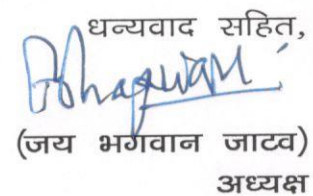 धन्यवाद सहित,
Bhagwan
(जय भगवान जाटव)
अध्यक्ष